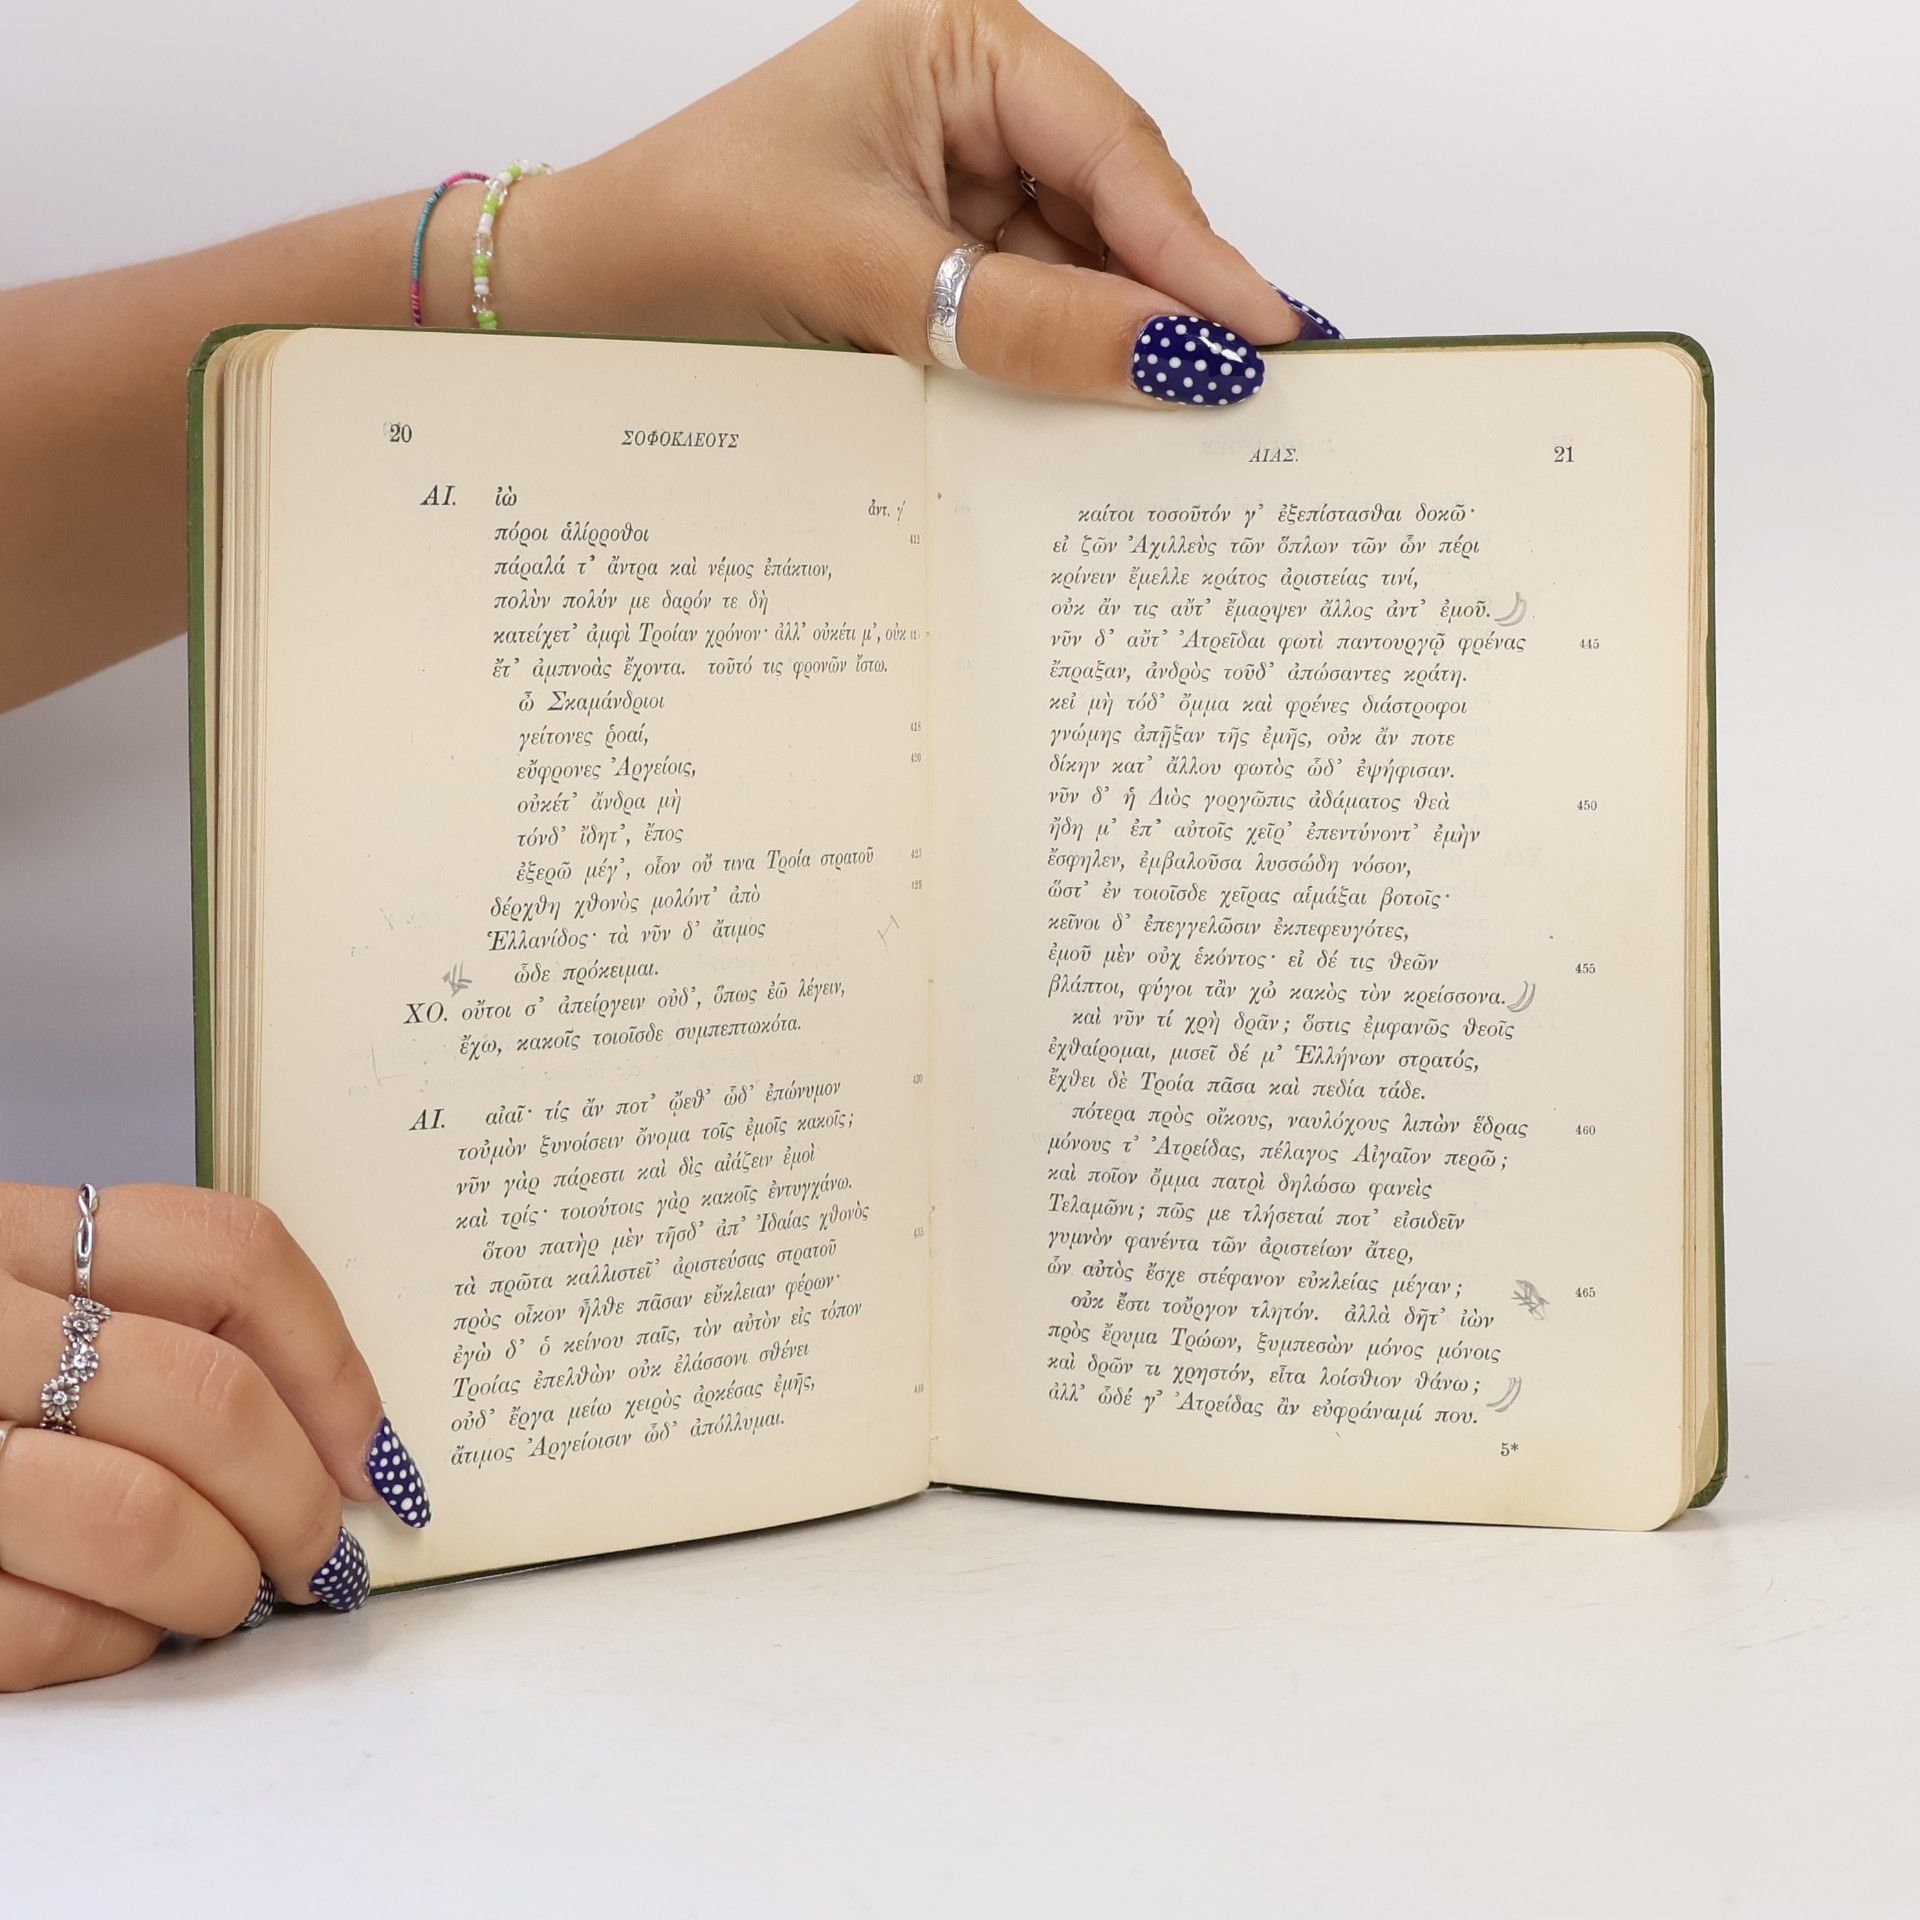 20
ΣΟΦΟΚΛΕΟΥΣ
ΑΙ. ἰὼ
ἀντ. γ΄
πόροι ἁλίρροθοι
πάραλά τ' ἄντρα καὶ νέμος ἐπάκτιον,
πολὺν πολύν με δαρόν τε δὴ
κατείχετ' ἀμφὶ Τροίαν χρόνον· ἀλλ' οὐκέτι μ', οὐκ
ἔτ' ἀμπνοὰς ἔχοντα. τοῦτό τις φρονῶν ἴστω.
ὦ Σκαμάνδριοι
γείτονες ῥοαί, 418
εὔφρονες Ἀργείοις, 420
οὐκέτ' ἄνδρα μὴ
τόνδ' ἴδητ', ἔπος
ἐξερῶ μέγ', οἷον οὔ τινα Τροία στρατοῦ 423
δέρχθη χθονὸς μολόντ' ἀπὸ 425
Ἑλλανίδος· τὰ νῦν δ' ἄτιμος
ὧδε πρόκειμαι.
ΧΟ. οὔτοι σ' ἀπείργειν οὐδ', ὅπως ἐῶ λέγειν,
ἔχω, κακοῖς τοιοῖσδε συμπεπτωκότα.
ΑΙ. αἰαῖ· τίς ἄν ποτ' ᾤεθ' ὧδ' ἐπώνυμον 430
τοὐμὸν ξυνοίσειν ὄνομα τοῖς ἐμοῖς κακοῖς;
νῦν γὰρ πάρεστι καὶ δὶς αἰάζειν ἐμοὶ
καὶ τρίς· τοιούτοις γὰρ κακοῖς ἐντυγχάνω.
ὅτου πατὴρ μὲν τῆσδ' ἀπ' Ἰδαίας χθονὸς
τὰ πρῶτα καλλιστεῖ' ἀριστεύσας στρατοῦ 435
πρὸς οἶκον ἦλθε πᾶσαν εὔκλειαν φέρων·
ἐγὼ δ' ὁ κείνου παῖς, τὸν αὐτὸν εἰς τόπον
Τροίας ἐπελθὼν οὐκ ἐλάσσονι σθένει
οὐδ' ἔργα μείω χειρὸς ἀρκέσας ἐμῆς,
ἄτιμος Ἀργείοισιν ὧδ' ἀπόλλυμαι. 440
ΑΙΑΣ.
21
καίτοι τοσοῦτόν γ' ἐξεπίστασθαι δοκῶ·
εἰ ζῶν Ἀχιλλεὺς τῶν ὅπλων τῶν ὧν πέρι
κρίνειν ἔμελλε κράτος ἀριστείας τινί,
οὐκ ἄν τις αὔτ' ἔμαρψεν ἄλλος ἀντ' ἐμοῦ.
νῦν δ' αὔτ' Ἀτρεῖδαι φωτὶ παντουργῷ φρένας 445
ἔπραξαν, ἀνδρὸς τοῦδ' ἀπώσαντες κράτη.
κεἰ μὴ τόδ' ὄμμα καὶ φρένες διάστροφοι
γνώμης ἀπῇξαν τῆς ἐμῆς, οὐκ ἄν ποτε
δίκην κατ' ἄλλου φωτὸς ὧδ' ἐψήφισαν.
νῦν δ' ἡ Διὸς γοργῶπις ἀδάματος θεὰ 450
ἤδη μ' ἐπ' αὐτοῖς χεῖρ' ἐπεντύνοντ' ἐμὴν
ἔσφηλεν, ἐμβαλοῦσα λυσσώδη νόσον,
ὥστ' ἐν τοιοῖσδε χεῖρας αἱμάξαι βοτοῖς·
κεῖνοι δ' ἐπεγγελῶσιν ἐκπεφευγότες,
ἐμοῦ μὲν οὐχ ἑκόντος· εἰ δέ τις θεῶν 455
βλάπτοι, φύγοι τἂν χὠ κακὸς τὸν κρείσσονα.
καὶ νῦν τί χρὴ δρᾶν; ὅστις ἐμφανῶς θεοῖς
ἐχθαίρομαι, μισεῖ δέ μ' Ἑλλήνων στρατός,
ἔχθει δὲ Τροία πᾶσα καὶ πεδία τάδε.
πότερα πρὸς οἴκους, ναυλόχους λιπὼν ἕδρας 460
μόνους τ' Ἀτρείδας, πέλαγος Αἰγαῖον περῶ;
καὶ ποῖον ὄμμα πατρὶ δηλώσω φανεὶς
Τελαμῶνι; πῶς με τλήσεταί ποτ' εἰσιδεῖν
γυμνὸν φανέντα τῶν ἀριστείων ἄτερ,
ὧν αὐτὸς ἔσχε στέφανον εὐκλείας μέγαν; 465
οὐκ ἔστι τοὔργον τλητόν. ἀλλὰ δῆτ' ἰὼν
πρὸς ἔρυμα Τρώων, ξυμπεσὼν μόνος μόνοις
καὶ δρῶν τι χρηστόν, εἶτα λοίσθιον θάνω;
ἀλλ' ὧδέ γ' Ἀτρείδας ἂν εὐφράναιμί που.
5*